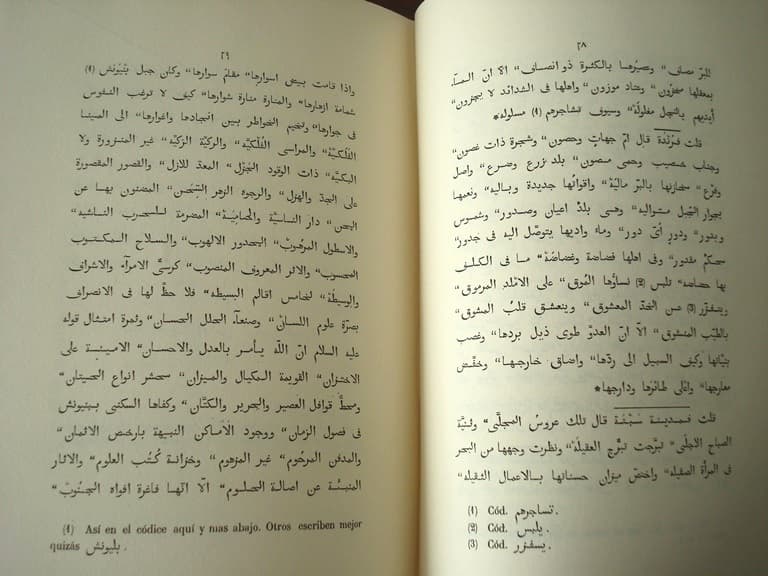 ٢٨
للبرّ مصاف" وصيّرها بالكثرة ذو انصاف" الا انّ المـاء
بمعقلها مخزون" وعتاد موزون" واهلها فى الشدائد لا يجزون"
أيديهم بالبخل مغلولة" وسيوف تشاجرهم (1) مسلولة*
قلت فرُنْدة قال امّ جهاتٍ وحصون" وشجرة ذات غصون"
وجناب خصيب وحمى مصون" بلد زرع وضرع" واصل
وفرع" مخازنها بالبرّ مالية" واقواتها جديدة وبالية" ونعمها
بجوار الجبل متوالية" وهى بلد اعيان وصدور" وشموس
وبدور" ودور أىّ دور" وماء واديها يتوصّل اليه فى جدور"
محكم مقدور" وفى اهلها فضاضة وغضاضة" ما فى الكلف
بها تلبس (2) نساؤها الموق" على الاملد المرموق"
(3) عن الخدّ المعشوق" وينعشق قلبُ المشوق"
بالطيب المنشوق" الّا انّ العدوّ طوى ذيل بردها" وغصب
بنيّاتها وكيف السبيل الى ردّها" واضاق خارجها" وخفّض
معارجها" واعلى طائرها ودارجها*
قلت فمدينة سَبْتَة قال تلك عروس المجلّى" وثنيّة
الصباح الاجلى" تبرّجت تبرُّج العقيلة" ونظرت وجهها من البحر
فى المرأة الصقيلة" واخصّ ميزان حسناتها بالاعمال الثقيلة"
(1) Cód. تساجرهم.
(2) Cód. يلبس.
(3) Cód. يسفزر.
٢٩
واذا قامت بيض اسوارها" مقام سوارها" وكان جبل بنيونش (1)
شمامة ازهارها" والمنارة منارة شوارها" كيف لا ترغب النفوس
فى جوارها" وتخيم الخواطر بين انجادها واغوارها" الى المينا
الفلكيّة" والمراسى الفُلْكيّة" والركيّة الزكيّة" غير المنزورة ولا
البكيّة" ذات الوقود الجَزْل" المعدّ للازل" والقصور المقصورة
على الجدّ والهزل" والوجوه الزهر السُحن" المضنون بها عن
المحن" دار الناشبة" والحامية" المضرمة للحرب الناشبه"
والاسطول المرهوب" المحذور الالهوب" والسلاح المكتوب
المحسوب" والاثر المعروف المنصوب" كرسىّ الامرآء والاشراف
والوسيطة" لخامس اقاليم البسيطه" فلا حظّ لها فى الانصراف
بصرة علوم اللسان" وصنعآء الحلل الحسان" وثمرة امتثال قوله
عليه السلام انّ الله يأمر بالعدل والاحسان" الامينة على
الاختزان" القويمة المكيال والميزان" محشر انواع الحيتان"
ومحطّ قوافل العصير والحرير والكتّان" وكفاها السكنى ببنيونش
فى فصول الزمان" ووجود الأماكن النبيهة بارخص الاثمان"
والمدفن المرحُوم" غير المزهوم" وخزانة كُتُب العلوم" والاثار
المنبئة عن اصالة الحلوم" الّا انّها فاغرة افواه الجنُوب"
(1) Así en el códice aquí y mas abajo. Otros escriben mejor
quizás بليونش.